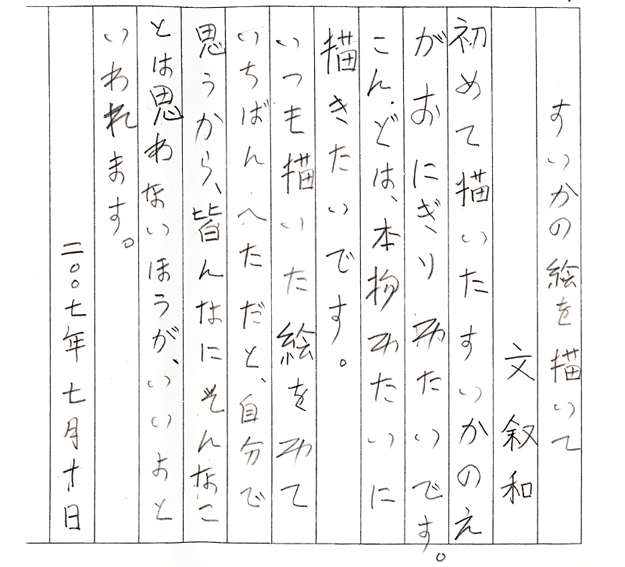 すいかの絵を描いて
文叙和
初めて描いたすいかのえ
がおにぎりみたいです。
こんどは、本物みたいに
描きたいです。
いつも描いた絵をみて
いちばんへただと、自分で
思うから、皆んなにそんなこ
とは思わないほうが、いいよと
いわれます。
二〇〇七年七月十日